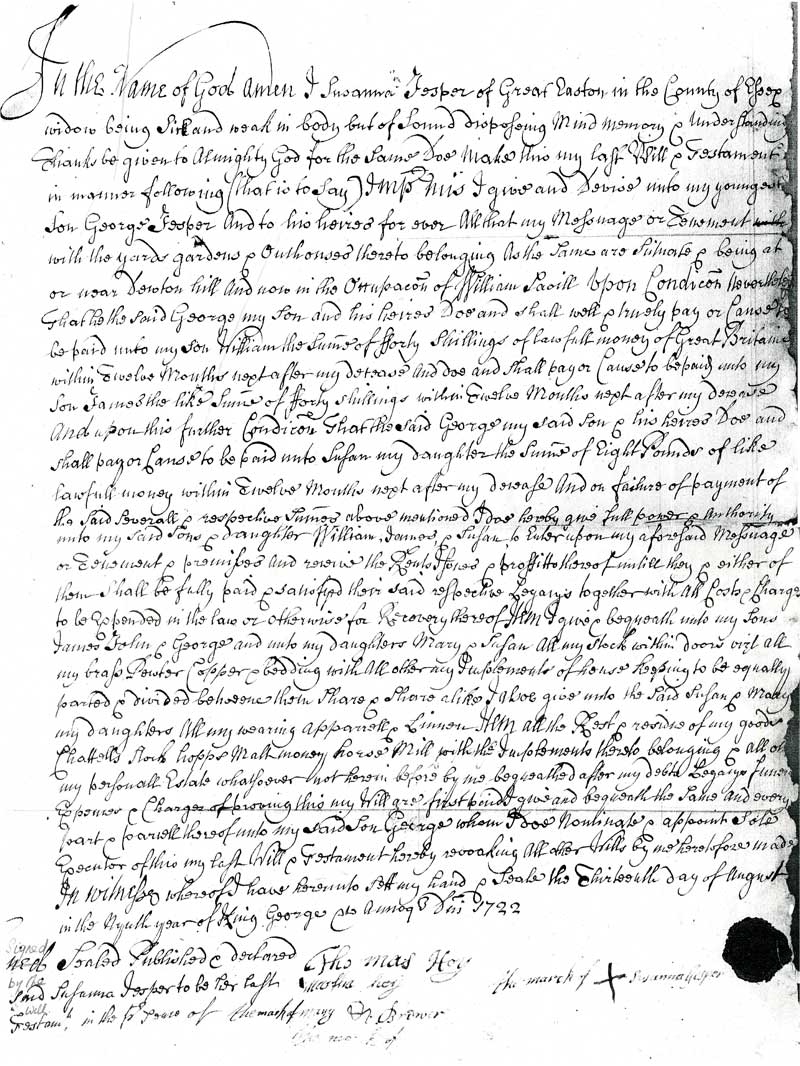 In the Name of God Amen I Susanna Jesper of Great Easton in the County of Essex
widow being Sick and weak in body but of Sound disposeing Mind memory & Understanding
Thanks be given to Almighty God for the Same Doe Make this my last Will & Testament
in manner following (that is to Say) Impr'mis I give and Devise unto my youngest
Son George Jesper And to his heires for ever All that my Messuage or Tenement
with the yards gardens & Outhouses thereto belonging As the Same are Situate & being at
or near Dewton hill And now in the Occupacon of William Savill Upon Condicon Neverthelesse
That he the said George my Son and his heires Doe and shall well & truely pay or Cause to
be paid unto my Son William the Sume of fforty Shillings of lawfull money of Great Britaine
within Twelve Months next after my decease And doe and shall pay or Cause to be paid unto my
Son James the like Sume of fforty shillings within Twelve Months next after my decease
And upon this further Condicon That the said George my said Son & his heires Doe and
shall pay or Cause to be paid unto Susan my daughter the Sume of Eight Pounds of like
lawfull money within Twelve Months next after my decease And on failure of payment of
the Said Severall & respective Sumes above mentioned I doe hereby give full power & Authority
unto my said Sons & daughter William, James & Susan to Enter upon my aforesaid Messuage
or Tenement & premisses And receive the Rents Issues & proffitts thereof untill they & either of
them Shall be fully paid & satisfied their said respective Legacys together with All Costs & Charges
to be Expended in the law or otherwise for Recovery thereof Item I give & bequeath unto my Sons
James John & George and unto my daughters Mary & Susan All my Stock within doors vizt all
my brass Pewter Copper & bedding with All other my Implements of house keeping to be equally
parted & divided betweene them Share & Share alike I doe give unto the Said Susan & Mary
my daughters All my wearing Apparrell & Linnen Item all the Rest & residue of my goods
Chattells Stock hopps Malt money horse Mill with the Implements thereto belonging & all other
my personall Estate whatsoever not herein before by me bequeathed after my debts Legacys funerall
Expences & Charges of proving this my Will are first paid I give and bequeath the Same And every
part & parcell thereof unto my said Son George whom I doe Nominate & appoint Sole
Executor of this my last Will & Testament hereby revoaking All other Wills by me heretofore made
In witness whereof I have hereunto Sett my hand & Seale the Thirteenth day of August
in the Nynth year of King George &c Annoq Dni 1722
Signed
Sealed Published & declared Thomas Hoy
by the
Said Susanna Jesper to be her last Martha Hoy the march of + Susanna Jesper
Will
Testamt. in the Prsence of the mach of mary Brewer
the mark of